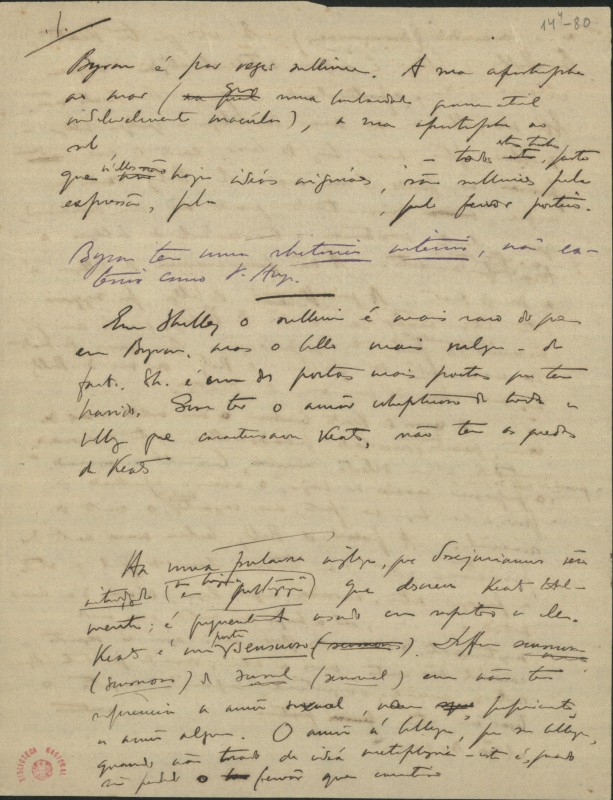 .1.
14⁴-80
Byron é por vezes sublime. A sua apostrophe
ao mar (que uma barbaridade grammatical
indelevelmente macula), a sua apostrophe ao
sol — todas estas, posto
que hoje idéas, são sublimes pela
expressão, pelo , pelo fervor poetico.
Byron tem uma rhetorica interior, não ex-
terior como V. Hugo.
Em Shelley o sublime é mais raro do que
em Byron, mas o bello mais vulgar — de
facto. Sh. é um dos poetas mais poetas que tem
havido. Sem ter o amôr voluptuoso de toda a
belleza que caracterisava Keats, não tem as quedas
de Keats
Ha uma palavra ingleza, que desejariamos vêr
introduzida (em portuguez) que descreve Keats
mente; é frequentemente usada em respeito a elle.
Keats é um poeta sensuoso (sensuous). Differe sensuoso
(sensuous) de sensual (sensual) em não ter
referencia a amôr sexual, nem
a amôr algum. O amôr á belleza, por ser belleza,
quando não tocado de idéa metaphysica — isto é, quando
o fervôr que
BIBLIOTECA NACIONAL